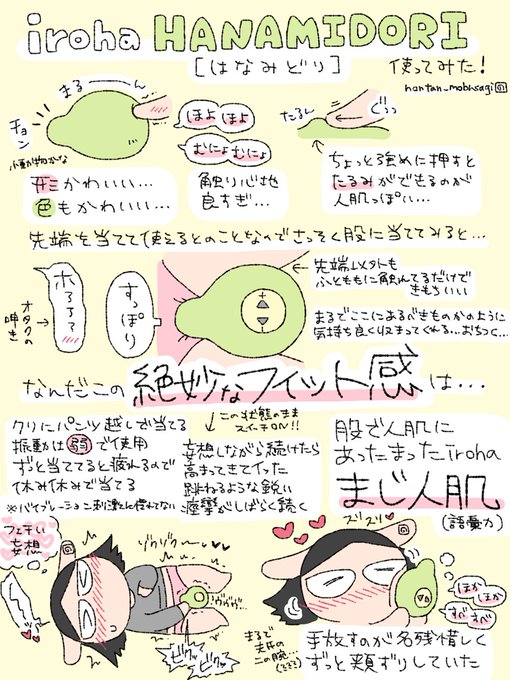 iroha HANAMIDORI
[はなみどり]
使ってみた!
hantan_mobusagi
まるーーん
チョン
小動物かな
ほよほよ
むにょむにょ
たるん
ぐっっ
形かわいい…
色もかわいい…
触り心地
良すぎ…
ちょっと強めに押すと
たるみができるのが
人肌っぽい…
先端を当てて使えるとのことなのでさっそく股に当ててみると…
オタクの
呟き
すっぽり
先端以外も
ふとももに触れてるだけで
きもちいい
まるでここにあるべきものかのように
気持ち良く収まってくれる…おちつく…
なんだこの絶妙なフィット感は…
クリにパンツ越しで当てる
振動は弱で使用
ずっと当ててると疲れるので
休み休みで当てる
※バイブレーション刺激に慣れてない
この状態のまま
スイッチON!!
妄想しながら続けたら
高まってきてイった
跳ねるような鋭い
痙攣がしばらく続く
股で人肌に
あったまったiroha
まじ人肌
(語彙力)
フェチい
妄想
ゾクゾク〜
ヴヴヴ…
ビクッビクッ
まるで
夫氏の
二の腕…
ズリズリ
ほかほか
すべすべ
手放すのが名残惜しく
ずっと頬ずりしていた